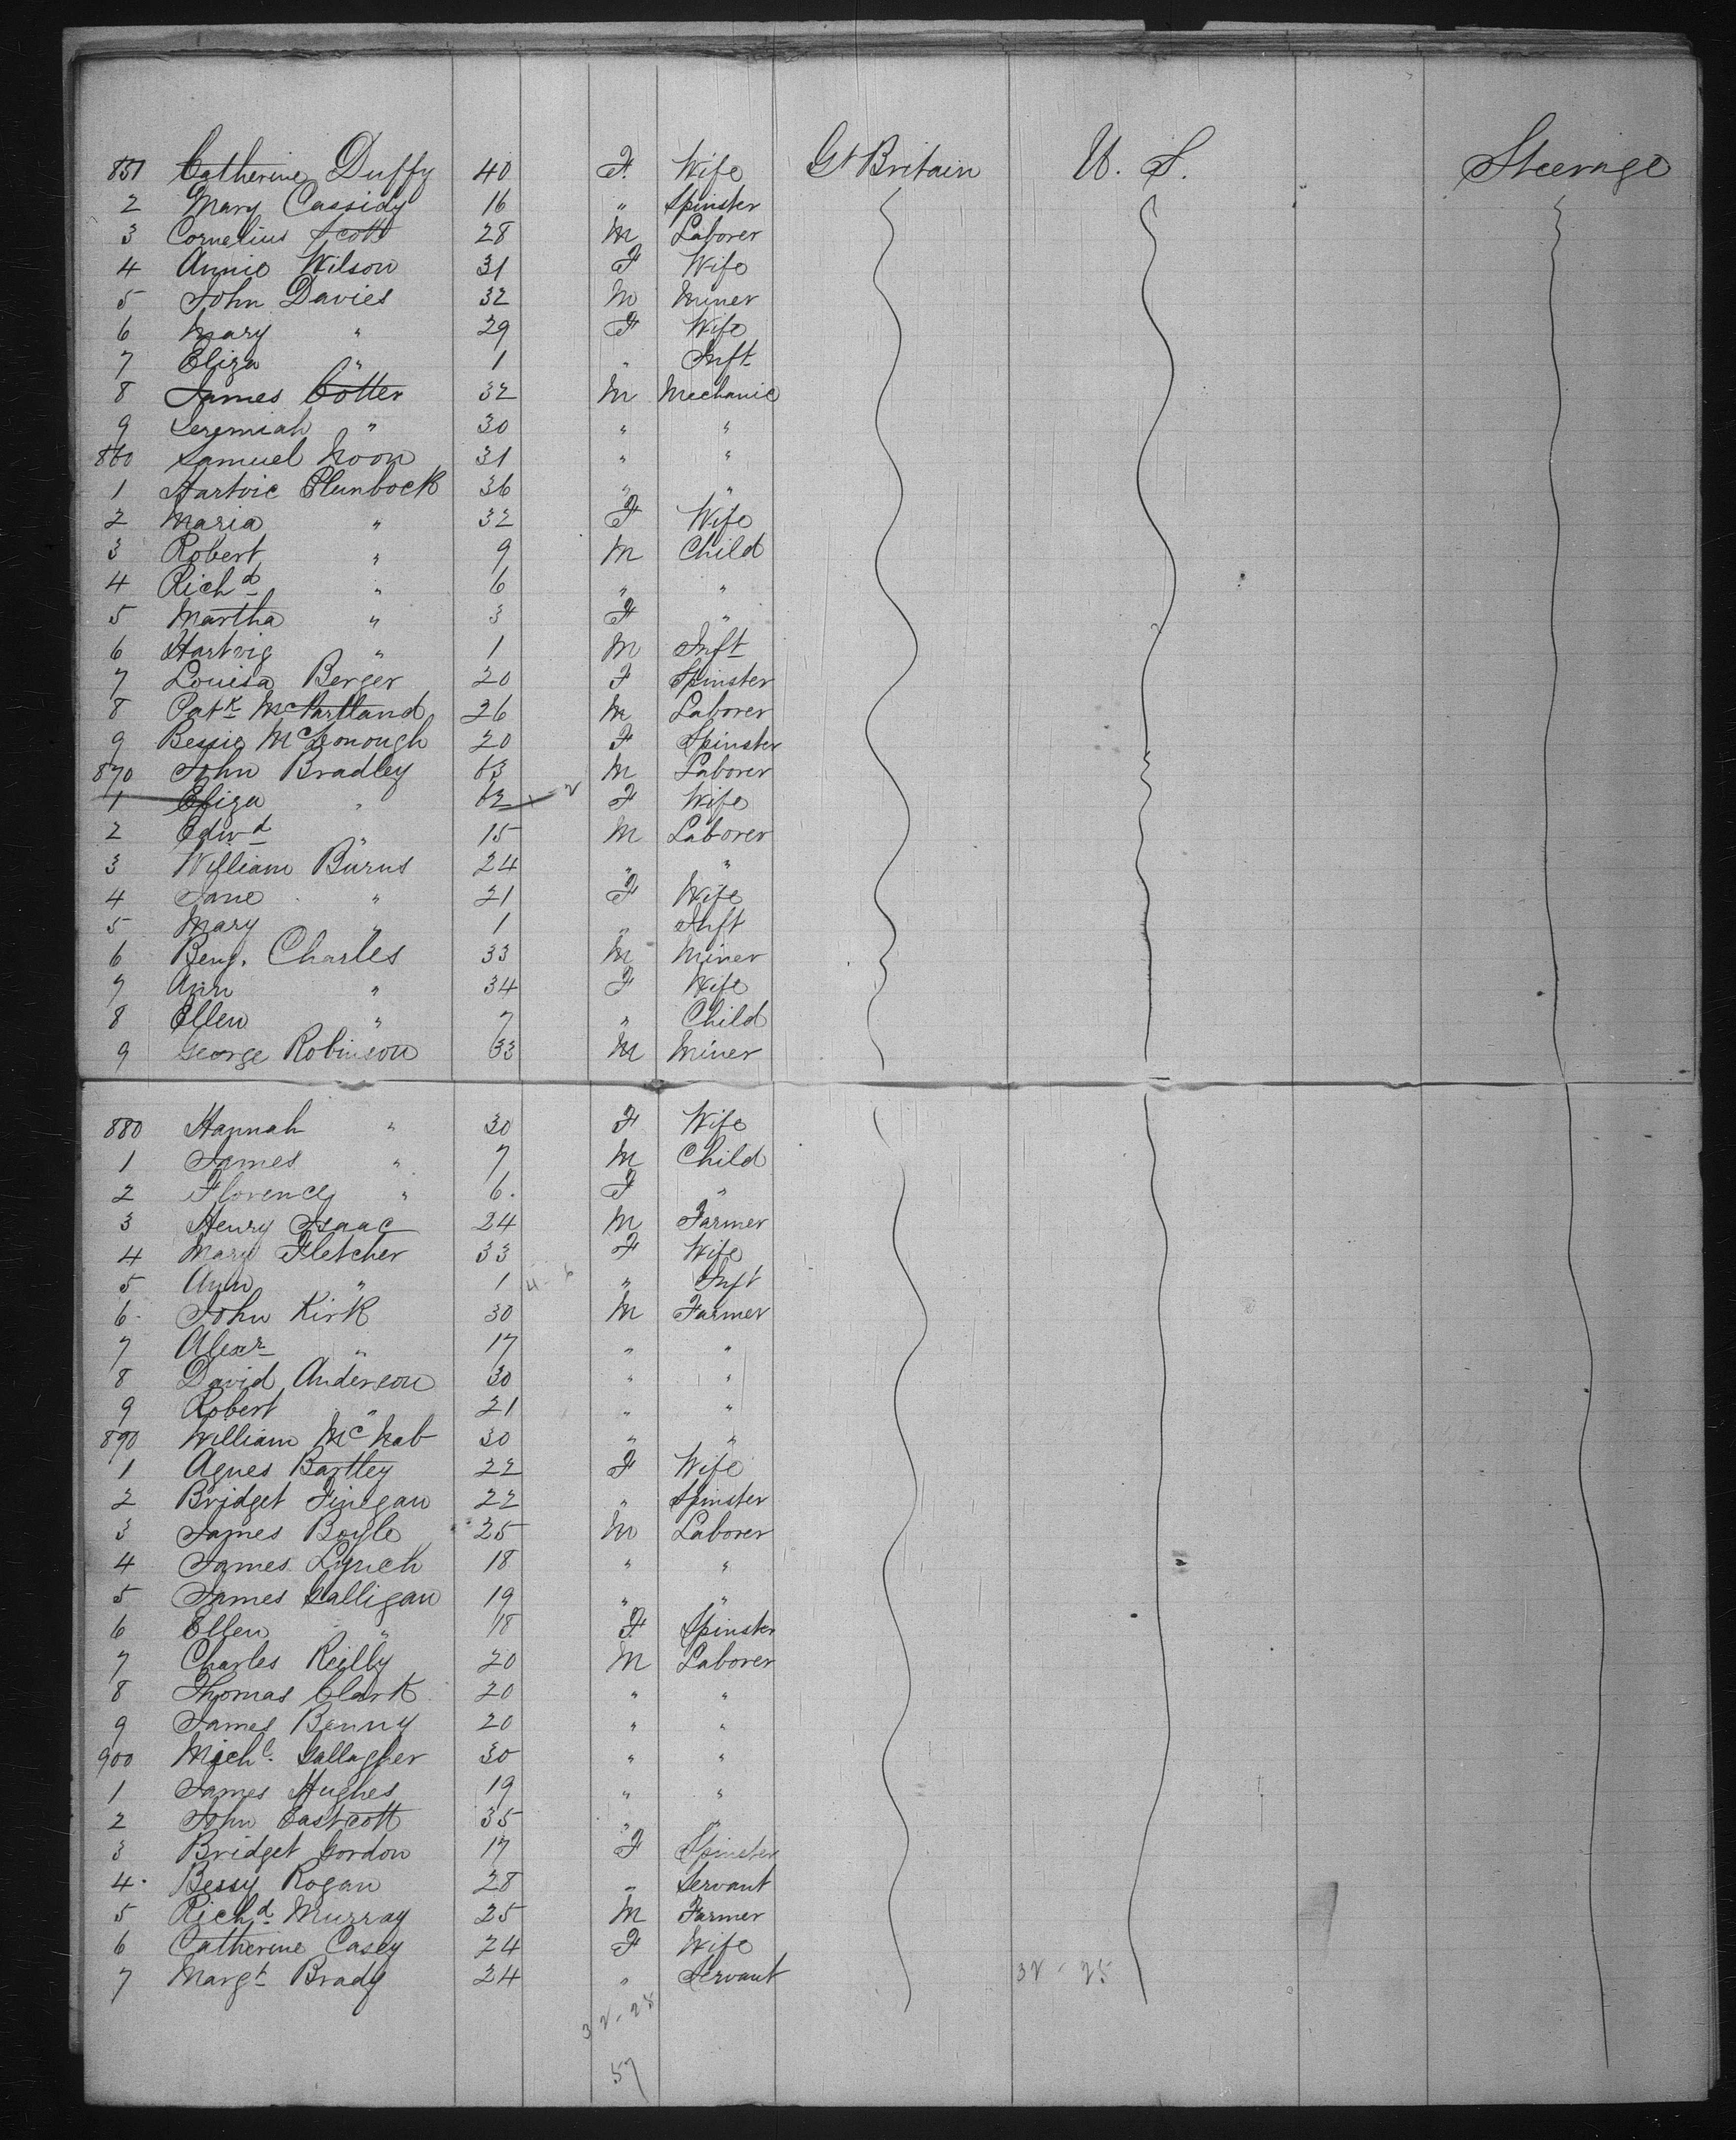 851 Catherine Duffy 40 F. Wife Gt Britain U. S. Steerage
2 Mary Cassidy 16 " Spinster
3 Cornelius Scott 28 M Laborer
4 Annie Wilson 31 F Wife
5 John Davies 32 M Miner
6 Mary " 29 F Wife
7 Eliza " 1 " Inft
8 James Cotter 32 M Mechanic
9 Jeremiah " 30 " "
860 Samuel Noon 31 " "
1 Hartvic Plunbock 36 " "
2 Maria " 32 F Wife
3 Robert " 9 M Child
4 Richd " 6 " "
5 Martha " 3 F "
6 Hartvig " 1 M Inft
7 Louisa Berger 20 F Spinster
8 Patk McPartland 26 M Laborer
9 Bessie McDonough 20 F Spinster
870 John Bradley 63 M Laborer
1 Eliza " 62 F Wife
2 Edwd " 15 M Laborer
3 William Burns 24 " "
4 Jane " 21 F Wife
5 Mary " 1 " Inft
6 Benj. Charles 33 M Miner
7 Ann " 34 F Wife
8 Ellen " 7 " Child
9 George Robinson 33 M Miner
880 Hannah " 30 F Wife
1 James " 7 M Child
2 Florence " 6. F "
3 Henry Isaac 24 M Farmer
4 Mary Fletcher 33 F Wife
5 Ann " 1 " Inft
6 John Kirk 30 M Farmer
7 Alexr " 17 " "
8 David Anderson 30 " "
9 Robert " 21 " "
890 William McNab 30 " "
1 Agnes Bartley 22 F Wife
2 Bridget Finegan 22 " Spinster
3 James Boyle 25 M Laborer
4 James Lynch 18 " "
5 James Galligan 19 " "
6 Ellen " 18 F Spinster
7 Charles Reilly 20 M Laborer
8 Thomas Clark 20 " "
9 James Benny 20 " "
900 Michl. Gallagher 30 " "
1 James Hughes 19 " "
2 John Eastcott 35 " "
3 Bridget Gordon 17 F Spinster
4 Bessy Rogan 28 " Servant
5 Richd Murray 25 M Farmer
6 Catherine Casey 24 F Wife
7 Margt Brady 24 " Servant 32-25
32-25
57